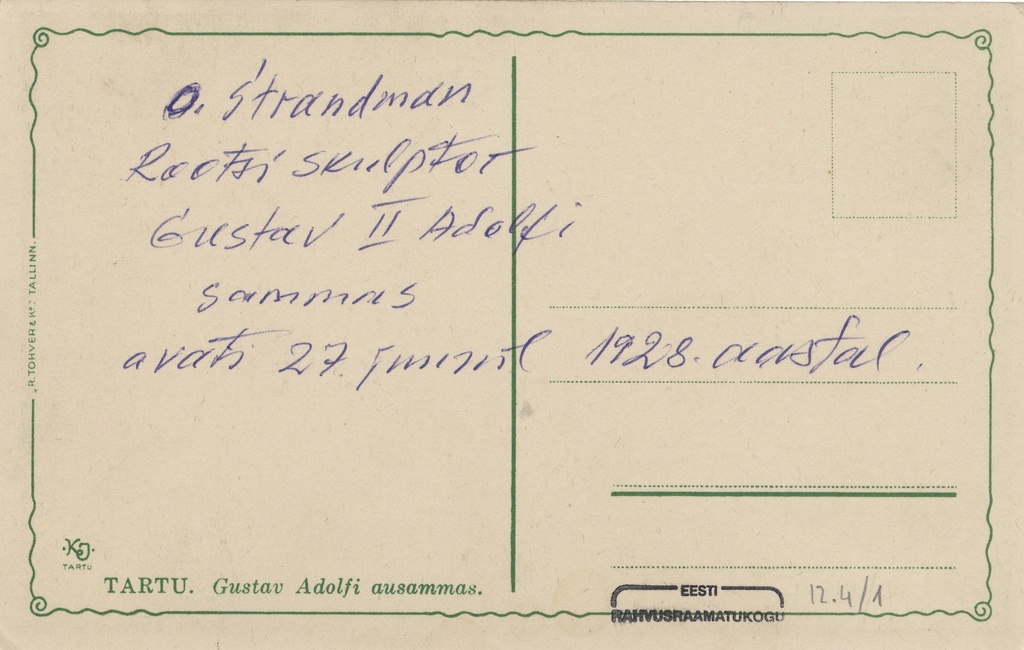 O. Strandman
Rootsi skulptor
Gustav II Adolfi
sammas
avati 27. juunil 1928. aastal.
R. TOHVER & Ko. TALLINN.
KJ
TARTU
TARTU. Gustav Adolfi ausammas.
EESTI
RAHVUSRAAMATUKOGU
12.4/1